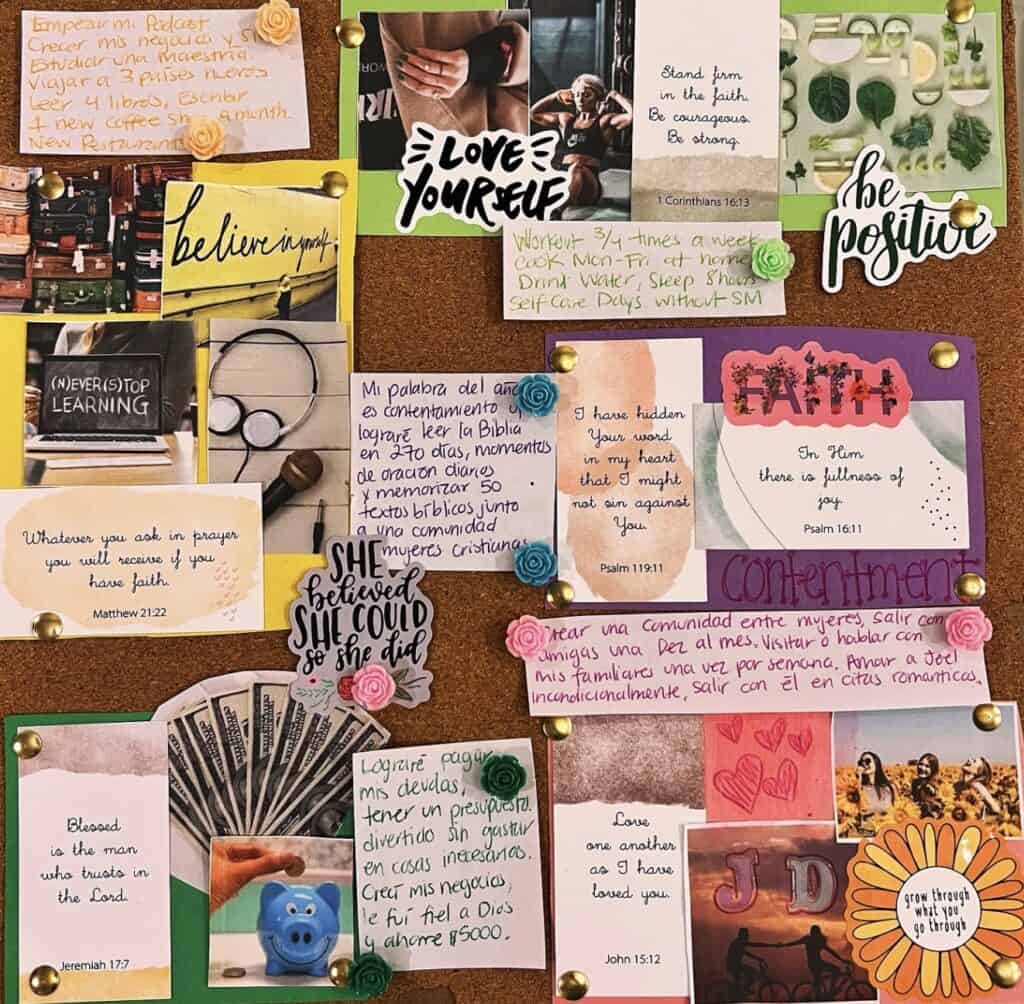 Empezar mi Podcast
Crecer mis negocios y
Estudiar una Maestria.
Viajar a 3 países nuevos
Leer 4 libros, Escribir
1 new coffee shop a month.
New Restaurant
LOVE
YOURSELF
Stand firm
in the faith.
Be courageous.
Be strong.
1 Corinthians 16:13
be
positive
Workout 3/4 times a week
Cook Mon-Fri at home
Drink Water, Sleep 8 hours
Self Care Days without SM
believe in yourself.
(N)EVER(S)TOP
LEARNING
Whatever you ask in prayer
you will receive if you
have faith.
Matthew 21:22
Mi palabra del año
es contentamiento y
lograré leer la Biblia
en 270 días, momentos
de oración diarios
y memorizar 50
textos bíblicos junto
a una comunidad
mujeres cristianas
SHE
believed
SHE COULD
so she did
I have hidden
Your word
in my heart
that I might
not sin against
You.
Psalm 119:11
FAITH
In Him
there is fullness of
joy.
Psalm 16:11
Contentment
Crear una comunidad entre mujeres, salir con
amigas una Dez al mes. Visitar o hablar con
mis familiares una vez por semana. Amar a Joel
incondicionalmente, salir con él en citas romanticas.
Blessed
is the man
who trusts in
the Lord.
Jeremiah 17:7
Lograré pagar
mis deudas,
tener un presupuesto
divertido sin gastar
en cosas inecesarias.
Crecí mis negocios,
le fui fiel a Dios
y ahorre $5000.
Love
one another
as I have
loved you.
John 15:12
J D
grow through
what you
go through